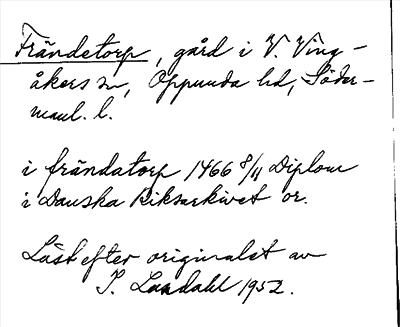 Frändetorp, gård i V. Ving-
åkers sn, Oppunda hd, Söder-
manl. l.
i frändatorp 1466 8/11 Diplom
i Danska Riksarkivet or.
Läst efter originalet av
I. Landahl 1952.